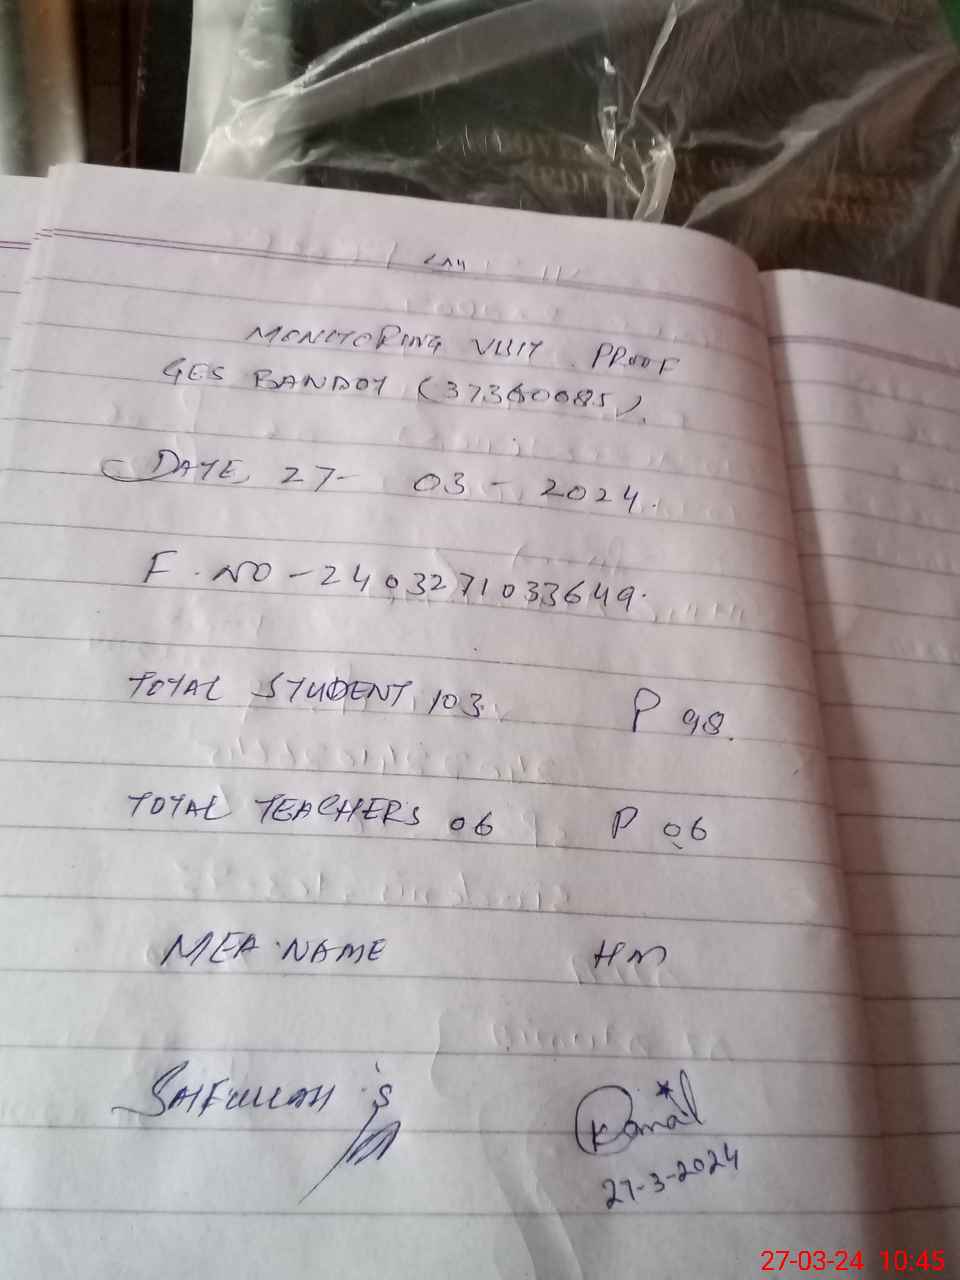 MONITORING VISIT PROOF
GES BANDOY (37360085).
DATE, 27- 03 - 2024.
F. NO - 2403271033649.
TOTAL STUDENT 103 P 98.
TOTAL TEACHERS 06 P 06
MEA NAME HM
SAIFULLAH
Kamal
27-3-2024
27-03-24 10:45